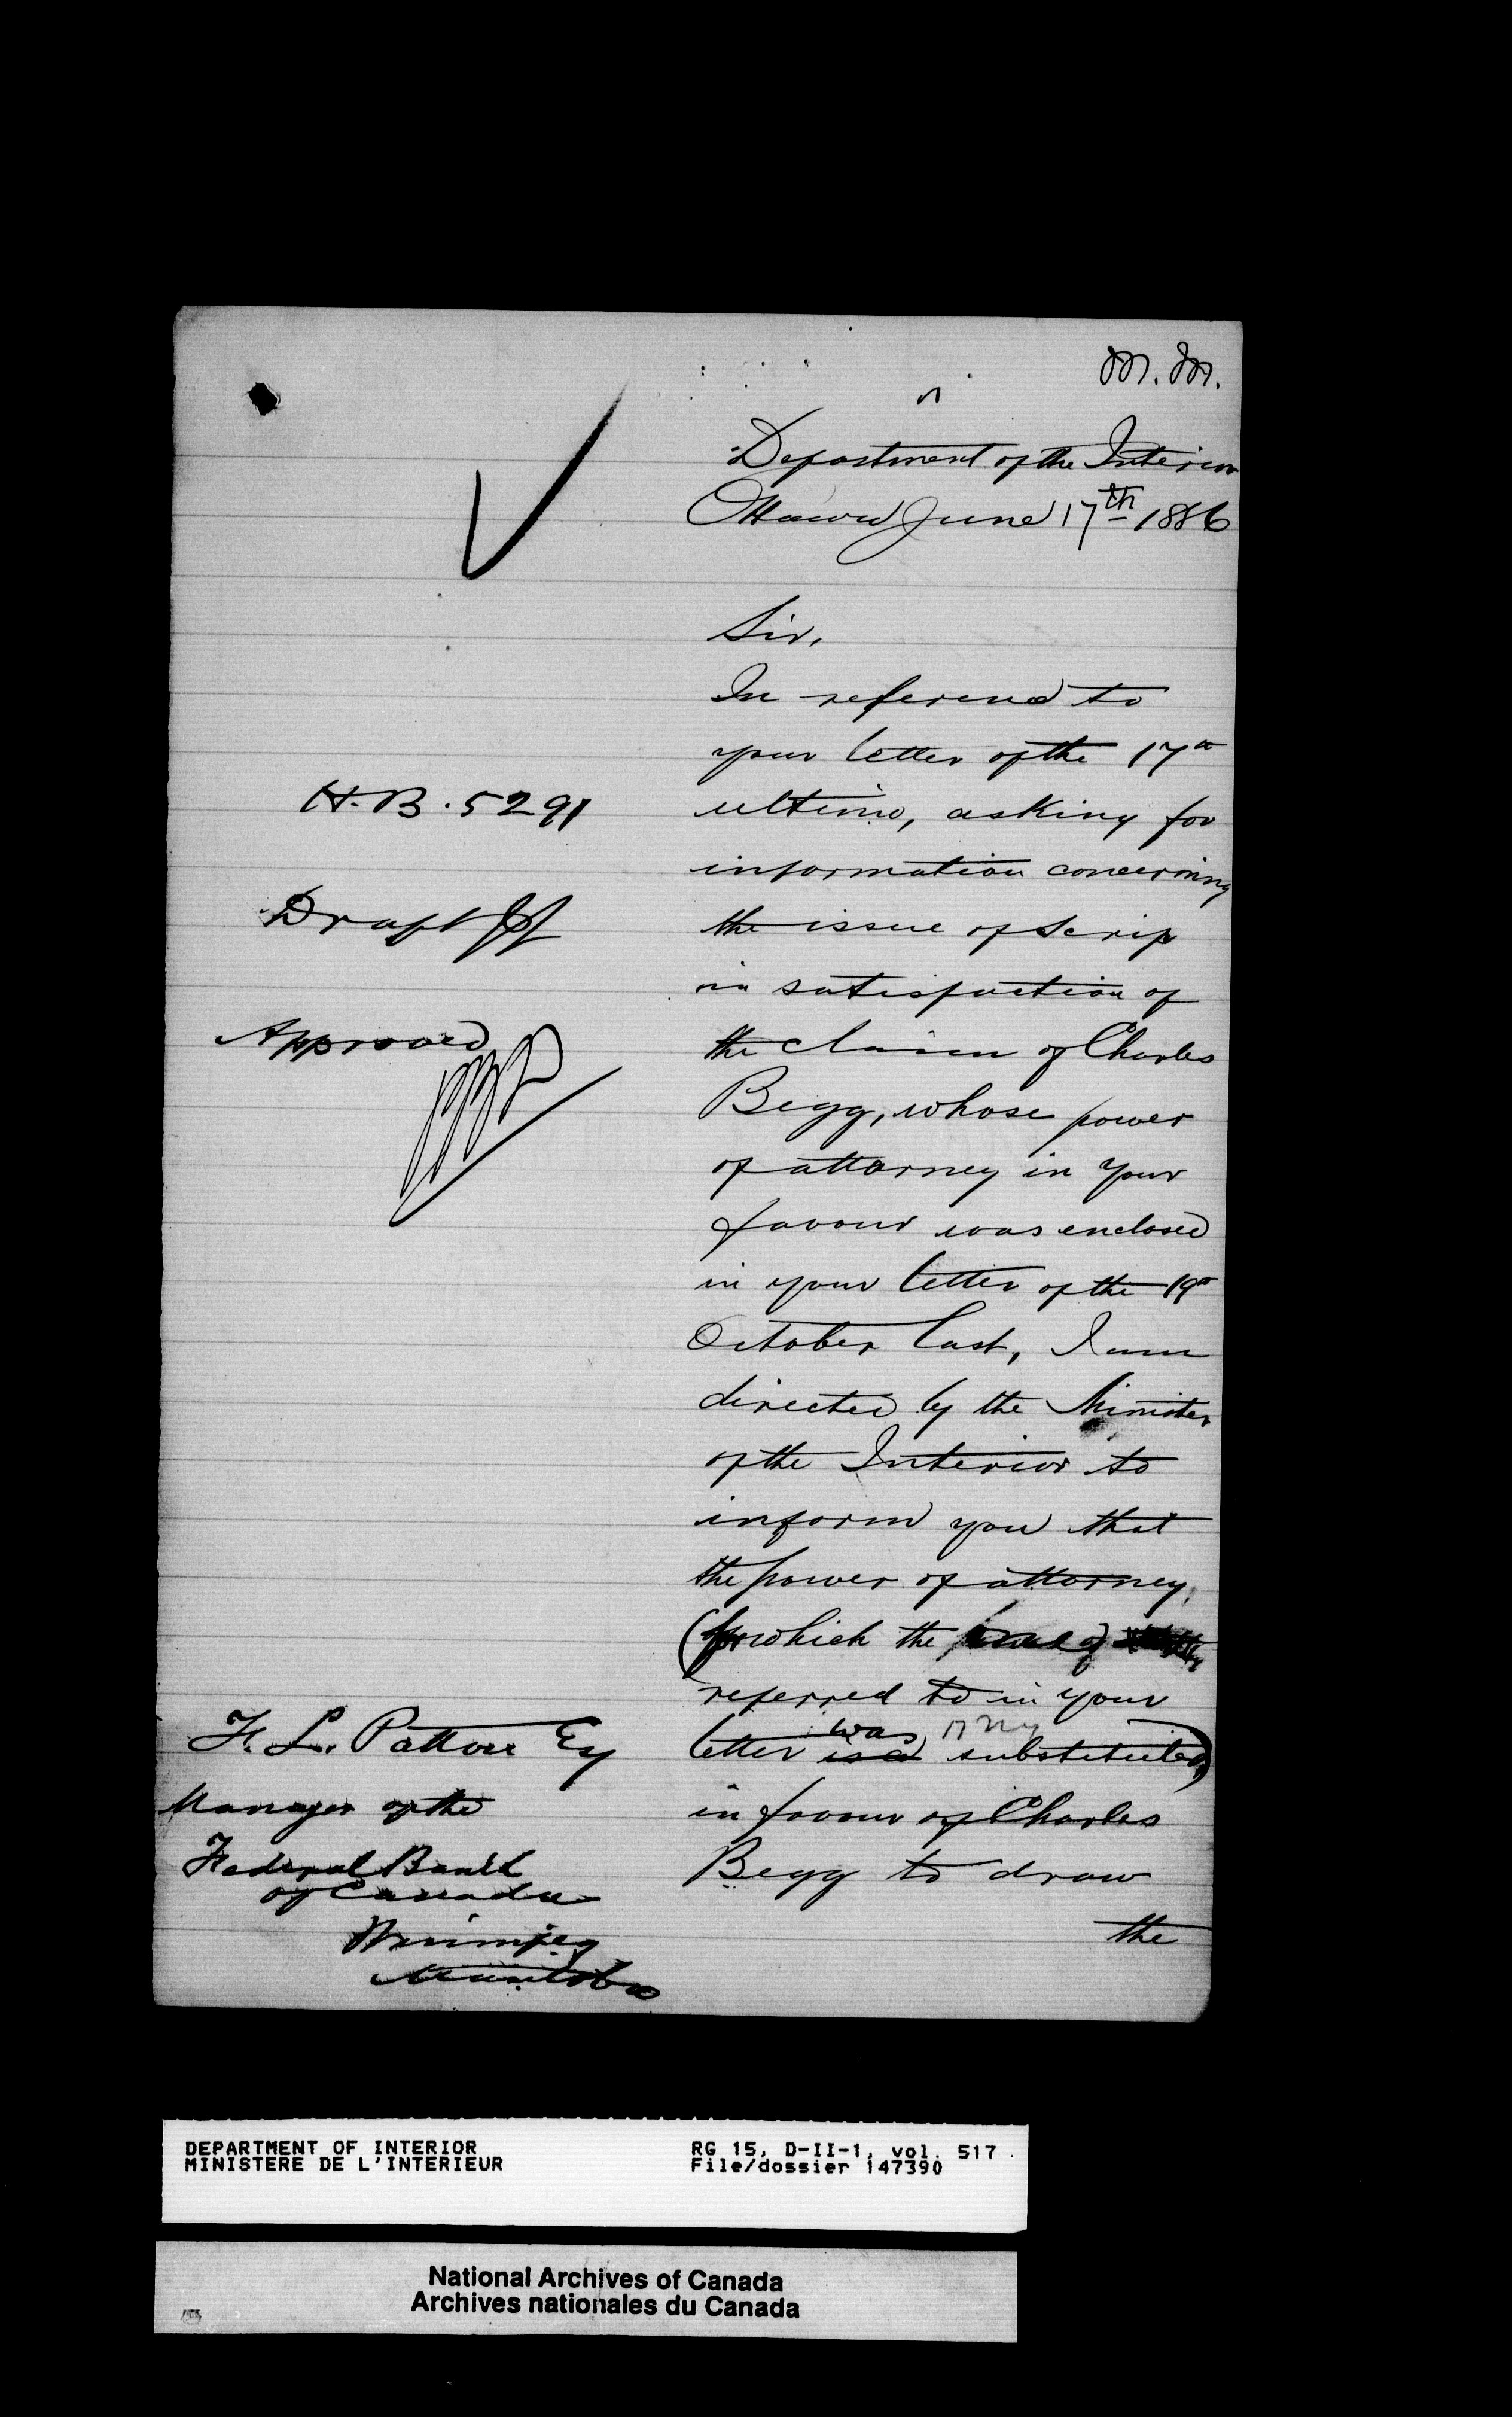 M.M.
Department of the Interior
Ottawa June 17th 1886
Sir,
In reference to
your letter of the 17th
ultimo, asking for
information concerning
the issue of Scrip
in satisfaction of
the claim of Charles
Begg, whose power
of attorney in your
favour was enclosed
in your letter of the 19th
October last, I am
directed by the Minister
of the Interior to
inform you that
the power of attorney,
(for which the
referred to in your
was
letter is a substituted)
in favour of Charles
Begg to draw
the
H.B. 5291
Draft
Approved
F. L. Patton Esq
Manager of the
Federal Bank
of Canada
Winnipeg
Manitoba
DEPARTMENT OF INTERIOR
MINISTERE DE L'INTERIEUR
RG 15, D-II-1, vol. 517
File/dossier 147390
National Archives of Canada
Archives nationales du Canada